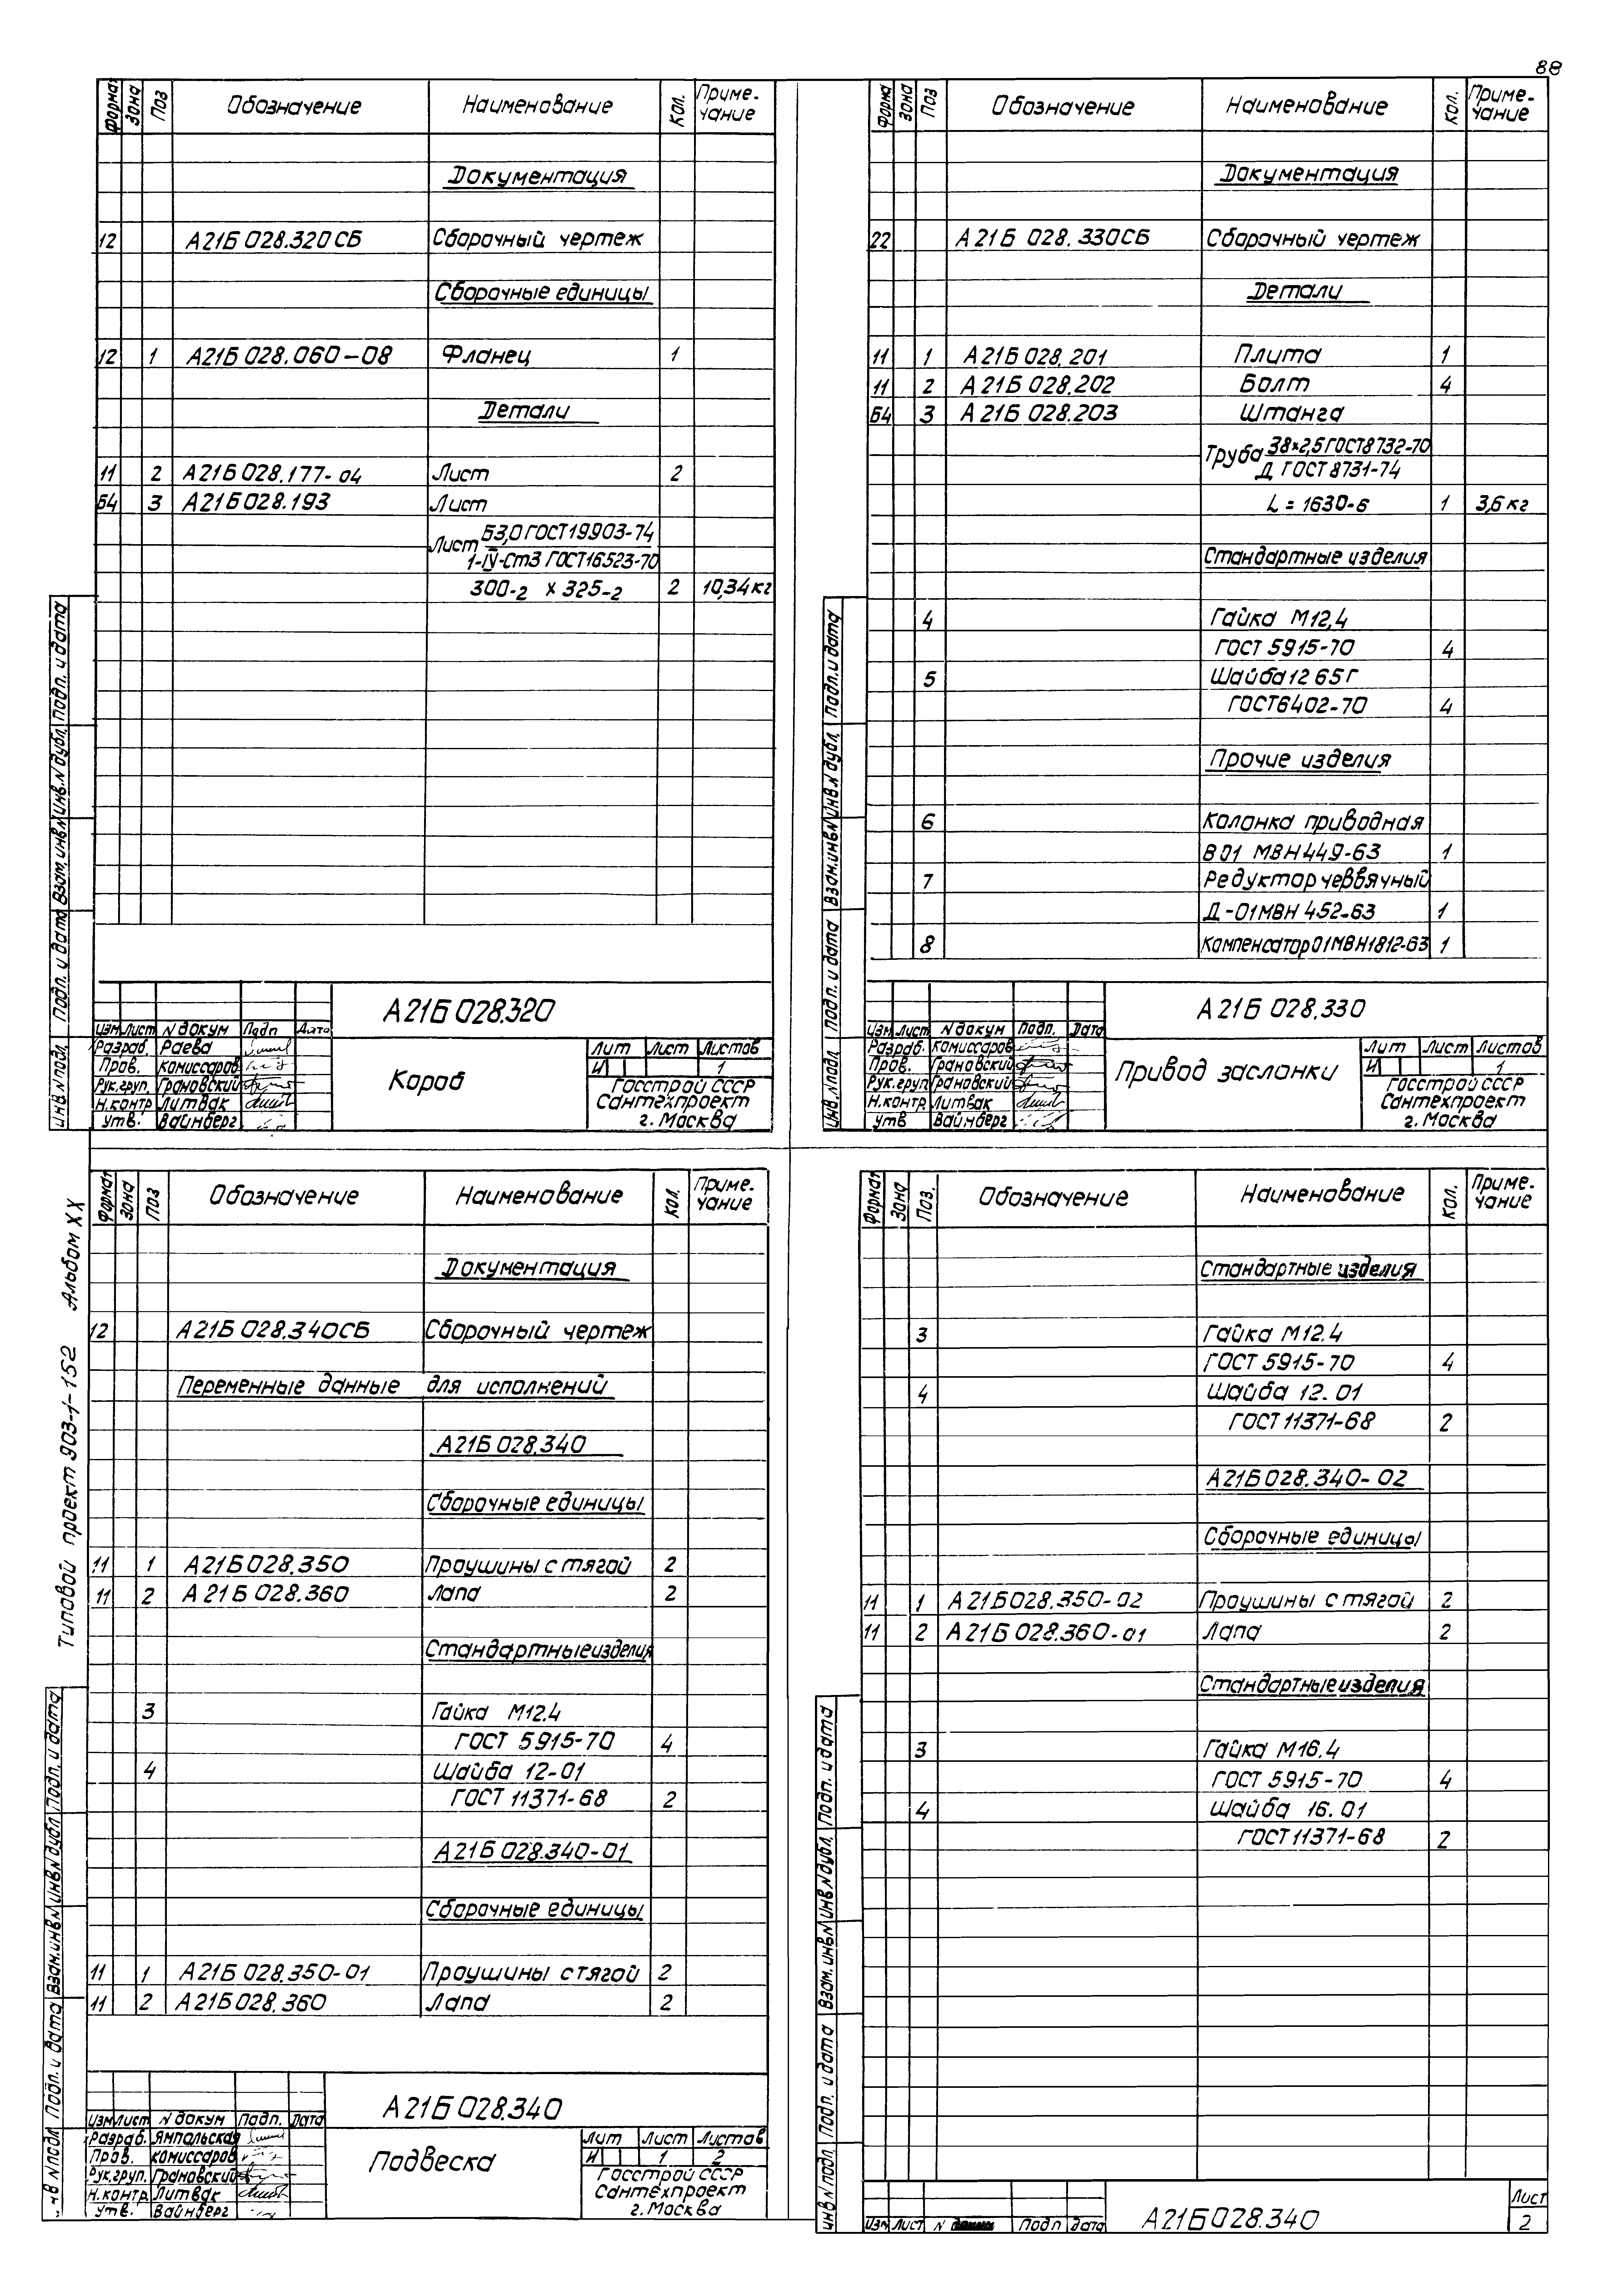 88
Формат Зона Поз Обозначение Наименование Кол. Приме-
чание
Документация
12 А21Б 028.320СБ Сборочный чертеж
Сборочные единицы
12 1 А21Б 028.060-08 Фланец 1
Детали
11 2 А21Б 028.177-04 Лист 2
Б4 3 А21Б 028.193 Лист
Лист Б3,0 ГОСТ19903-74
1-IV-Ст3 ГОСТ16523-70
300-2 х 325-2 2 10,34кг
А21Б 028.320
Изм Лист N докум Подп Дата
Разраб. Раева
Пров. Комиссаров
Рук.груп. Грановский
Н.контр Литвак
Утв. Вайнберг
Короб
Лит Лист Листов
И 1
Госстрой СССР
Сантехпроект
г. Москва
Инв.N подл. Подп. и дата Взам.инв.N Инв.N дубл. Подп. и дата
Формат Зона Поз Обозначение Наименование Кол. Приме-
чание
Документация
22 А21Б 028.330СБ Сборочный чертеж
Детали
11 1 А21Б 028.201 Плита 1
11 2 А21Б 028.202 Болт 4
Б4 3 А21Б 028.203 Штанга
Труба 38х2,5 ГОСТ8732-70
Д ГОСТ 8731-74
L = 1630-6 1 3,6кг
Стандартные изделия
4 Гайка М12,4
ГОСТ 5915-70 4
5 Шайба 12 65Г
ГОСТ6402-70 4
Прочие изделия
6 Колонка приводная
В01 МВН 449-63 1
7 Редуктор червячный
Д-01МВН 452-63 1
8 Компенсатор 01МВН1812-63 1
А21Б 028.330
Изм Лист N докум Подп. Дата
Разраб. Комиссаров
Пров. Грановский
Рук.груп Грановский
Н.контр Литвак
Утв Вайнберг
Привод заслонки
Лит Лист Листов
И 1
Госстрой СССР
Сантехпроект
г. Москва
Инв.N подл. Подп. и дата Взам.инв.N Инв.N дубл. Подп. и дата
Типовой проект 903-1-152 Альбом XX
Формат Зона Поз Обозначение Наименование Кол. Приме-
чание
Документация
12 А21Б 028.340СБ Сборочный чертеж
Переменные данные для исполнений
А21Б 028.340
Сборочные единицы
11 1 А21Б 028.350 Проушины с тягой 2
11 2 А21Б 028.360 Лапа 2
Стандартные изделия
3 Гайка М12.4
ГОСТ 5915-70 4
4 Шайба 12-01
ГОСТ 11371-68 2
А21Б 028.340-01
Сборочные единицы
11 1 А21Б 028.350-01 Проушины с тягой 2
11 2 А21Б 028.360 Лапа 2
А21Б 028.340
Изм Лист N докум Подп. Дата
Разраб. Ямпольская
Пров. Комиссаров
Рук.груп. Грановский
Н.контр. Литвак
Утв. Вайнберг
Подвеска
Лит Лист Листов
И 1 2
Госстрой СССР
Сантехпроект
г. Москва
нв N подл Подп. и дата Взам.инв.N Инв.N дубл Подп. и дата
Формат Зона Поз. Обозначение Наименование Кол. Приме-
чание
Стандартные изделия
3 Гайка М12.4
ГОСТ 5915-70 4
4 Шайба 12.01
ГОСТ 11371-68 2
А21Б 028.340-02
Сборочные единицы
11 1 А21Б 028.350-02 Проушины с тягой 2
11 2 А21Б 028.360-01 Лапа 2
Стандартные изделия
3 Гайка М16.4
ГОСТ 5915-70 4
4 Шайба 16.01
ГОСТ 11371-68 2
Изм Лист N Подп Дата
А21Б 028.340
Лист
2
Инв N подл. Подп. и дата Взам.инв.N Инв N дубл. Подп. и дата